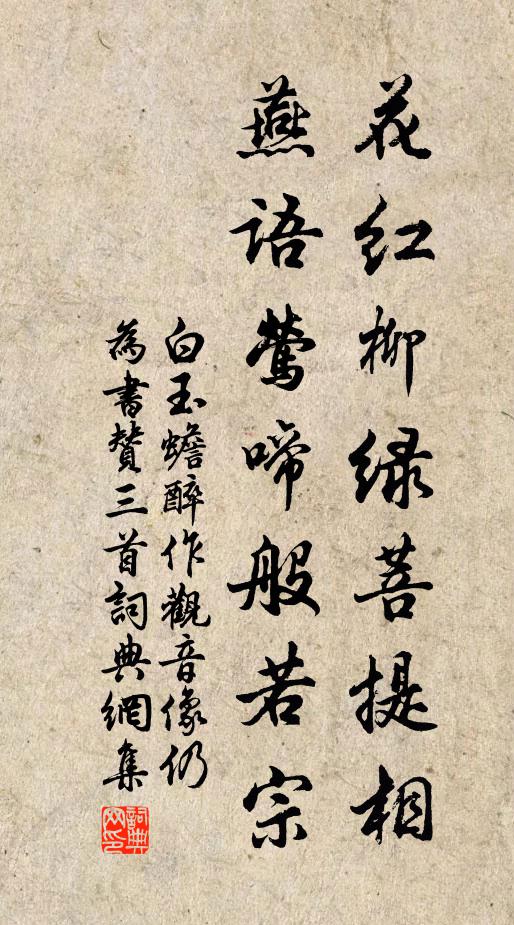 花红柳绿菩提相
燕語鶯啼般若宗
白玉蟾醉作觀音像仍
為書贊三首詞典網集
詞典
网印